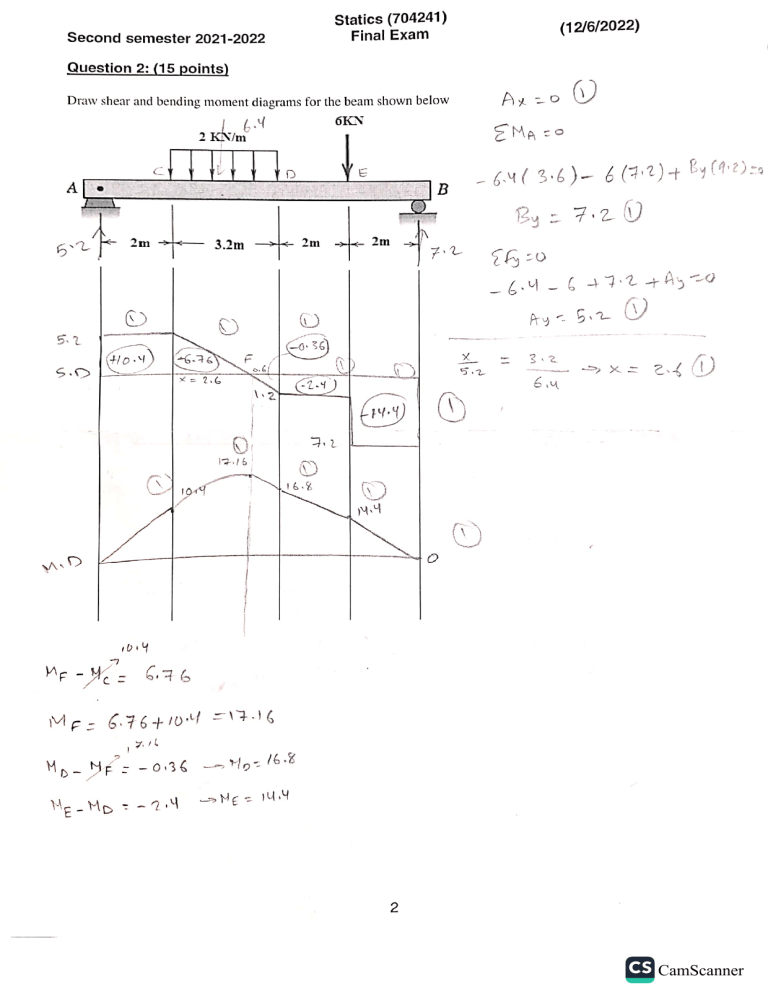 Statics (704241)
Second semester 2021-2022
Final Exam
(12/6/2022)
Question 2: (15 points)
Draw shear and bending moment diagrams for the beam shown below
Ax = 0 ①
6.4
6KN
2 KN/m
ΣMA = 0
C
D
E
A
B
-6.4(3.6) - 6(7.2) + By(9.2)=0
By = 7.2 ①
5.2
2m
3.2m
2m
2m
7.2
ΣFy=0
-6.4 - 6 + 7.2 + Ay = 0
Ay = 5.2 ①
① ① ①
5.2
+10.4
-6.76
F
0.6
-0.36
① ①
x/5.2 = 3.2/6.4 → x = 2.6 ①
S.D
x = 2.6
1.2
-2.4
-14.4
①
7.2
①
17.16
①
①
10.4
16.8
①
14.4
①
M.D
0
10.4
MF - MC = 6.76
MF = 6.76 + 10.4 = 17.16
17.16
MD - MF = -0.36 → MD = 16.8
ME - MD = -2.4 → ME = 14.4
2
CS CamScanner